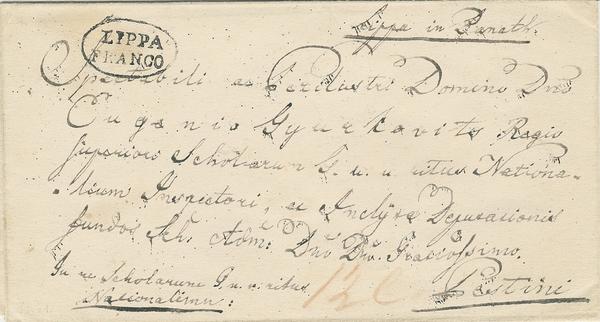 LIPPA
FRANCO
Lippa in Banath.
Spectabili ac Perillustri Domino Dno
Eugenio Gyurkovits Regio
Superioris Scholarum G. n. u. ritus Nationa-
-lium Inspectori, ac Inclytae Deputationis
fundos Sch. Adm: Dno Dno Graciossimo.
In re Scholarum G. n. u. ritus
Nationalium:
Pestini